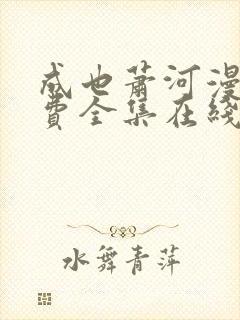 成也萧河漫
费全集在线
水舞青萍